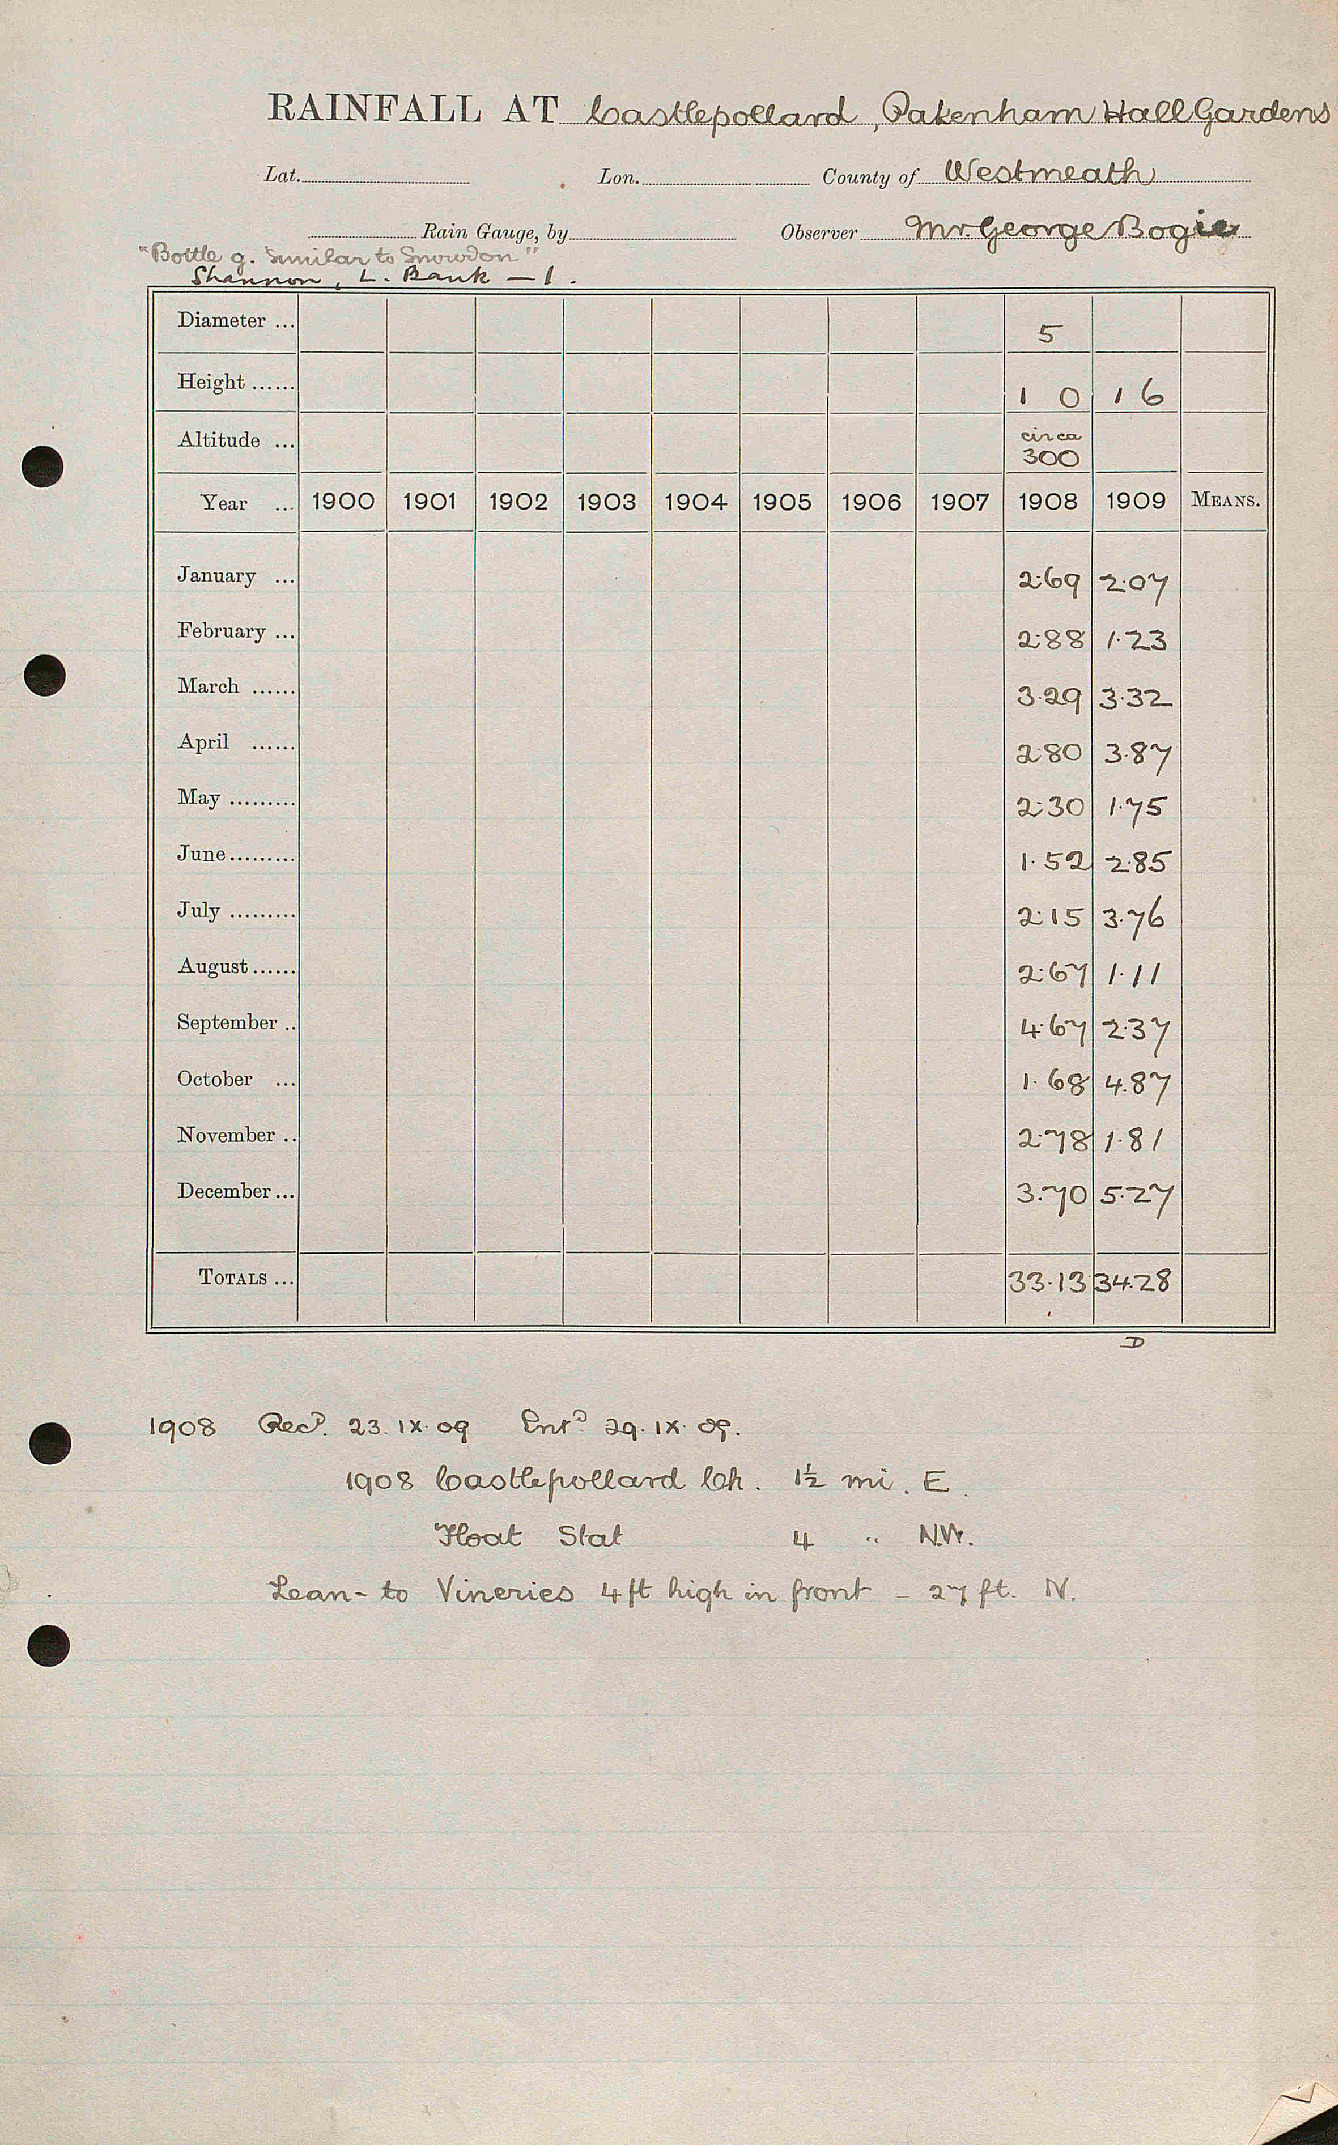 RAINFALL AT Castlepollard, Pakenham Hall Gardens
Lat. Lon. County of Westmeath
Rain Gauge, by Observer Mr. George Bogie
"Bottle g. Similar to Snowdon"
Shannon, L. Bank — 1.
Diameter ... 5
Height ...... 1 0 1 6
Altitude ... circa 300
Year ... 1900 1901 1902 1903 1904 1905 1906 1907 1908 1909 MEANS.
January ... 2.69 2.07
February ... 2.88 1.23
March ...... 3.29 3.32
April ...... 2.80 3.87
May ......... 2.30 1.75
June ......... 1.52 2.85
July ......... 2.15 3.76
August ...... 2.67 1.11
September .. 4.67 2.37
October ... 1.68 4.87
November .. 2.78 1.81
December ... 3.70 5.27
TOTALS ... 33.13 34.28
D
1908 Recd. 23.IX.09 Entd. 29.IX.09.
1908 Castlepollard Ch. 1½ mi. E.
Float Stat 4 " N.W.
Lean-to Vineries 4ft high in front - 27 ft. N.